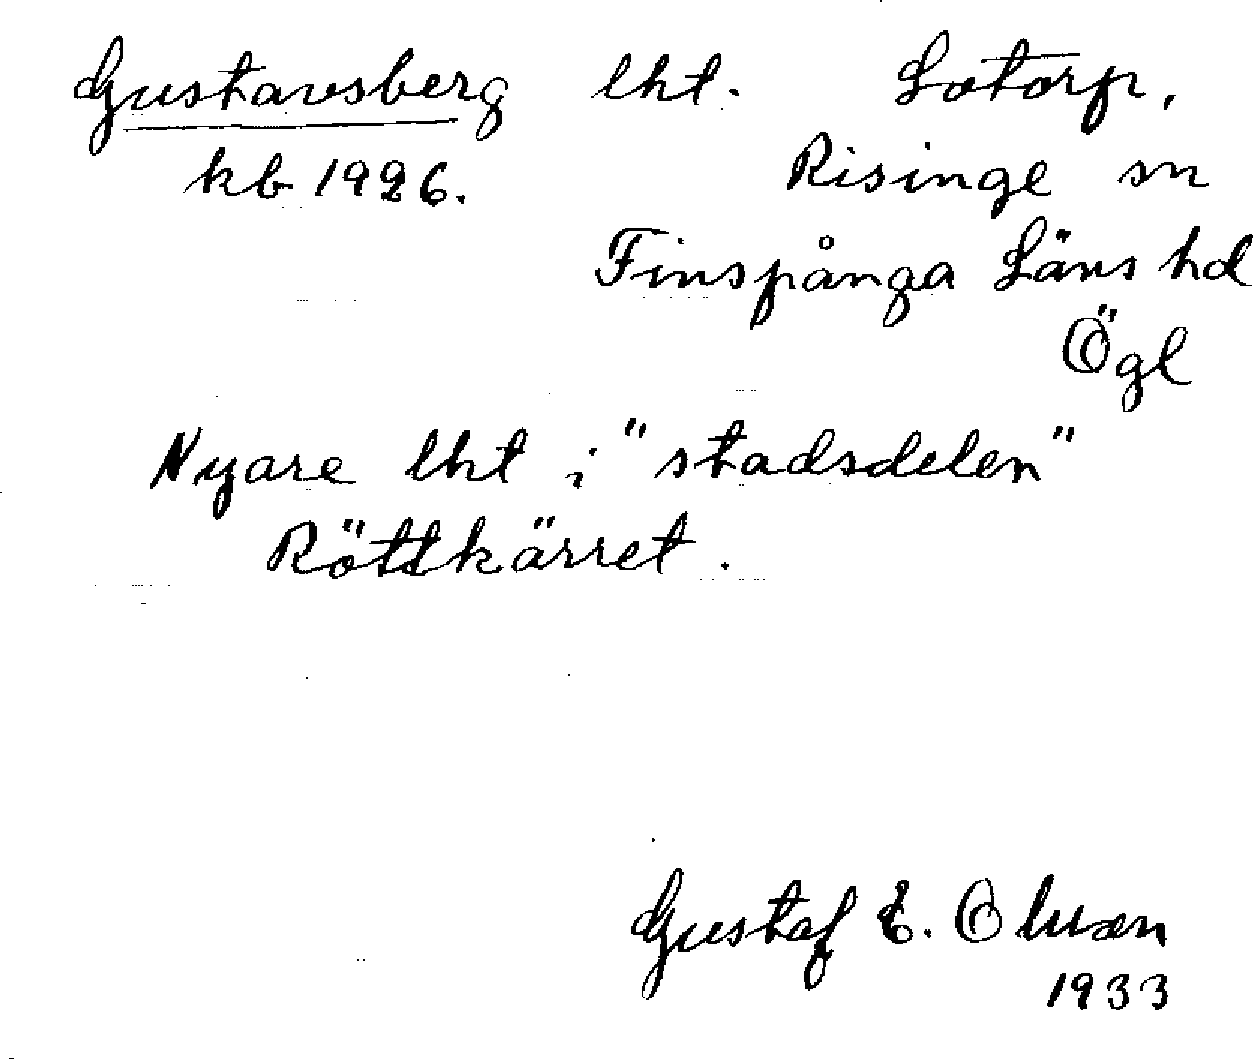 Gustavsberg lht. Lotorp,
kb 1926. Risinge sn
Finspånga Läns hd
Ögl
Nyare lht i "stadsdelen"
Röttkärret.
Gustaf E. Olsson
1933